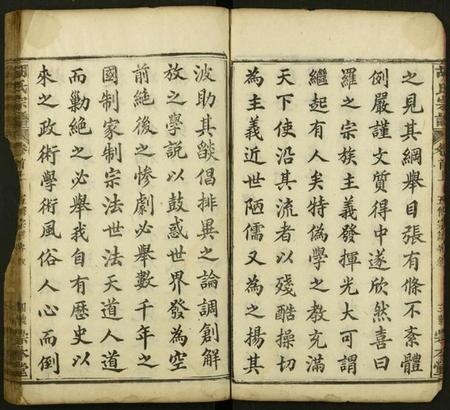 胡氏宗譜 卷首上
之見其綱舉目張有條不紊體
例嚴謹文質得中遂欣然喜曰
羅之宗族主義發揮光大可謂
繼起有人矣特偽學之教充滿
天下使沿其流者以殘酷操切
為主義近世陋儒又為之揚其
波助其燄倡排異之論調創解
放之學說以鼓惑世界發為空
前絕後之慘劇必舉數千年之
國制家制宗法世法天道人道
而勦絕之必舉我自有歷史以
來之政術學術風俗人心而倒